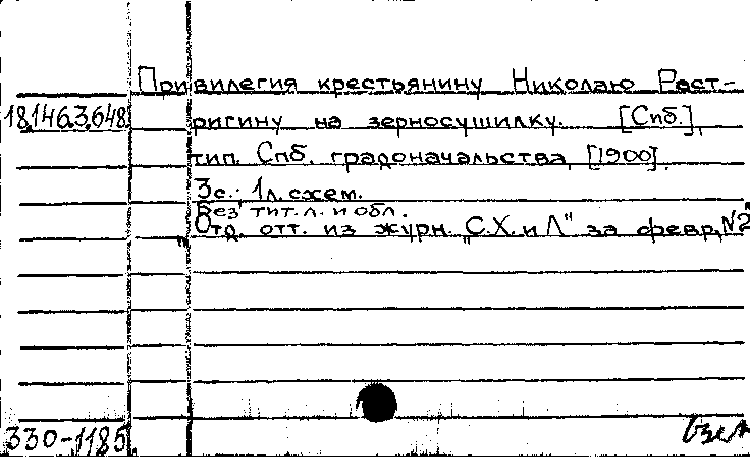 Привилегия крестьянину Николаю Раст-
18.146.3.648 ригину на зерносушилку. [Спб.],
тип. Спб. градоначальства, [1900].
3с.; 1л. схем.
Без тит. л. и обл.
"Отд. отт. из журн. „С.Х. и Л" за февр, №2"
330-1185